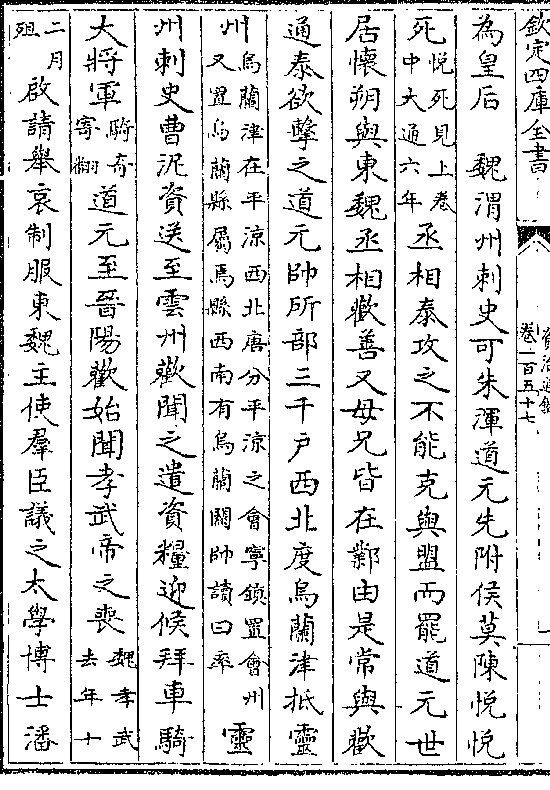 欽定四庫全書
資治通鑑
卷一百五十七
為皇后　魏渭州刺史可朱渾道元先附侯莫陳悅悅
死悅死見上卷中大通六年丞相泰攻之不能克與盟而罷道元世
居懷朔與東魏丞相歡善又母兄皆在鄴由是常與歡
通泰欲擊之道元帥所部三千戶西北度烏蘭津抵靈
州烏蘭津在平涼西北唐分平涼之會寧鎮置會州又置烏蘭縣屬焉縣西南有烏蘭關帥讀曰率靈
州刺史曹泥資送至雲州歡聞之遣資糧迎候拜車騎
大將軍騎奇寄翻道元至晉陽歡始聞孝武帝之喪魏孝武去年十
二月殂啟請舉哀制服東魏主使羣臣議之太學博士潘